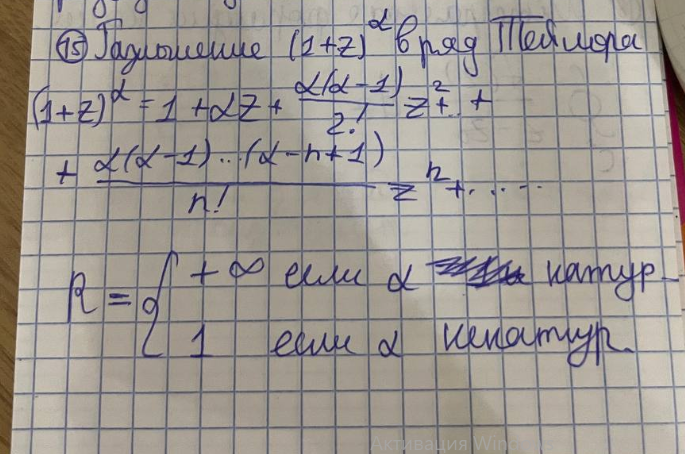 15 Разложение (1+z)^α в ряд Тейлора
(1+z)^α = 1 + αz + α(α-1)/2! z^2 + .. +
+ α(α-1)...(α-n+1)/n! z^n + .....
R = { +∞ если α натур-
1 если α ненатур.
Активация Windows